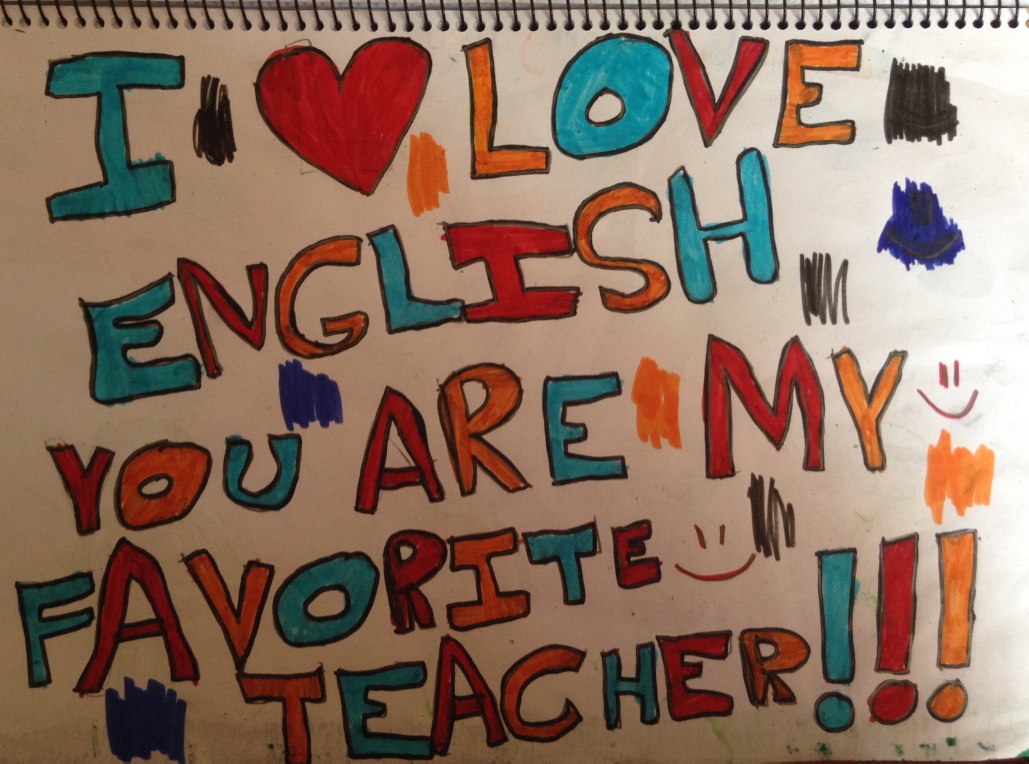 I ❤ LOVE
ENGLISH
YOU ARE MY
FAVORITE
TEACHER!!!